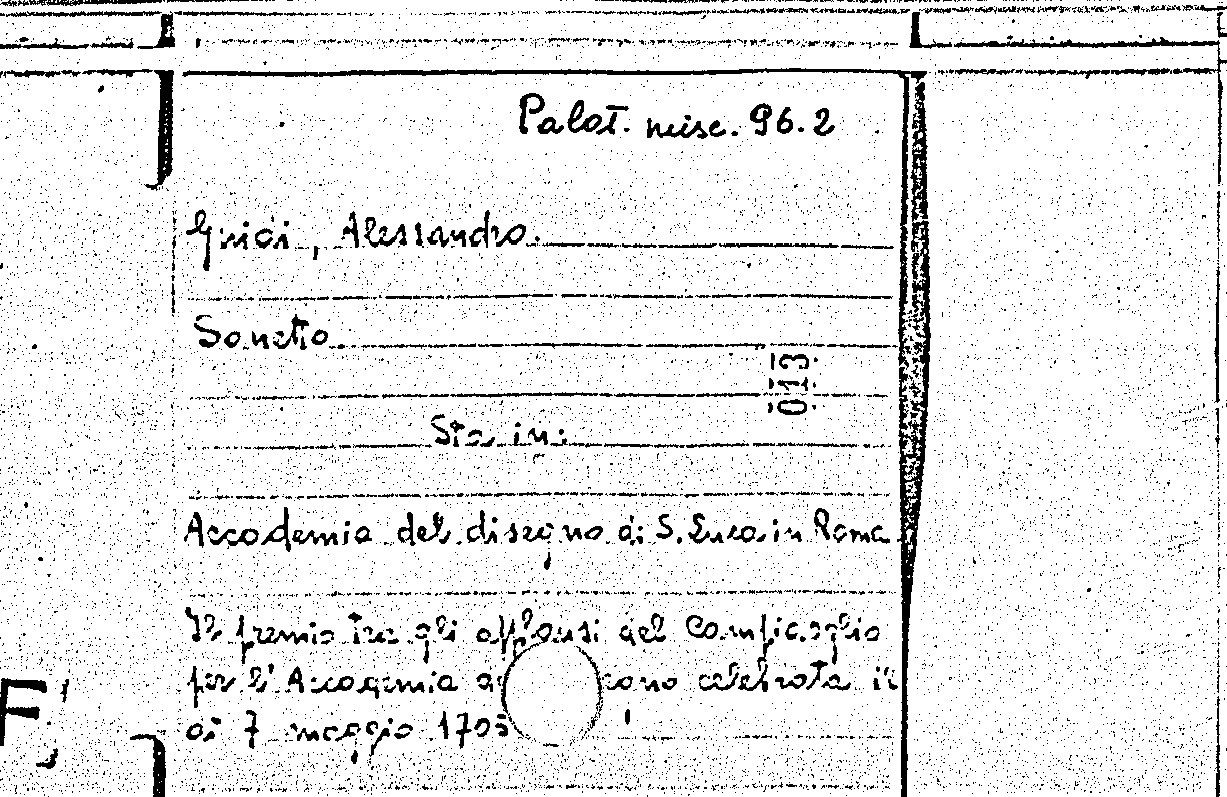 Palat. misc. 96.2
Guidi, Alessandro.
Sonetto.
013
Sta in:
Accademia del disegno di S. Luca in Roma
Il premio tra gli applausi del Campidoglio
per l'Accademia celebrata il
di 7 maggio 1705
F